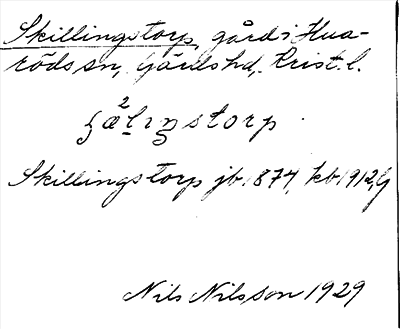 Skillingstorp, gård i Hua-
röds sn, Gärds hd, Krist. l.
Skillingstorp jb 1874, kb 1912, G
Nils Nilsson 1929